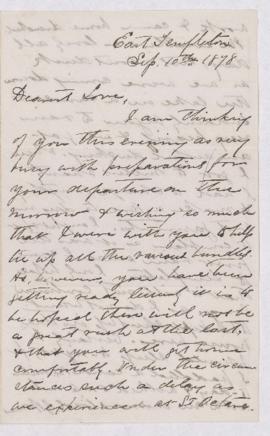 East Templeton
Sep. 10th 1878
Dearest Love,
I am thinking
of you this evening as very
busy with preparations for
your departure on the
morrow & wishing so much
that I were with you to help
tie up all the various bundles.
As however you have been
getting ready it is to
be hoped there will not be
a great rush at the last,
& that you will get home
comfortably. Under the circum
stances such a delay as
we experienced at St.